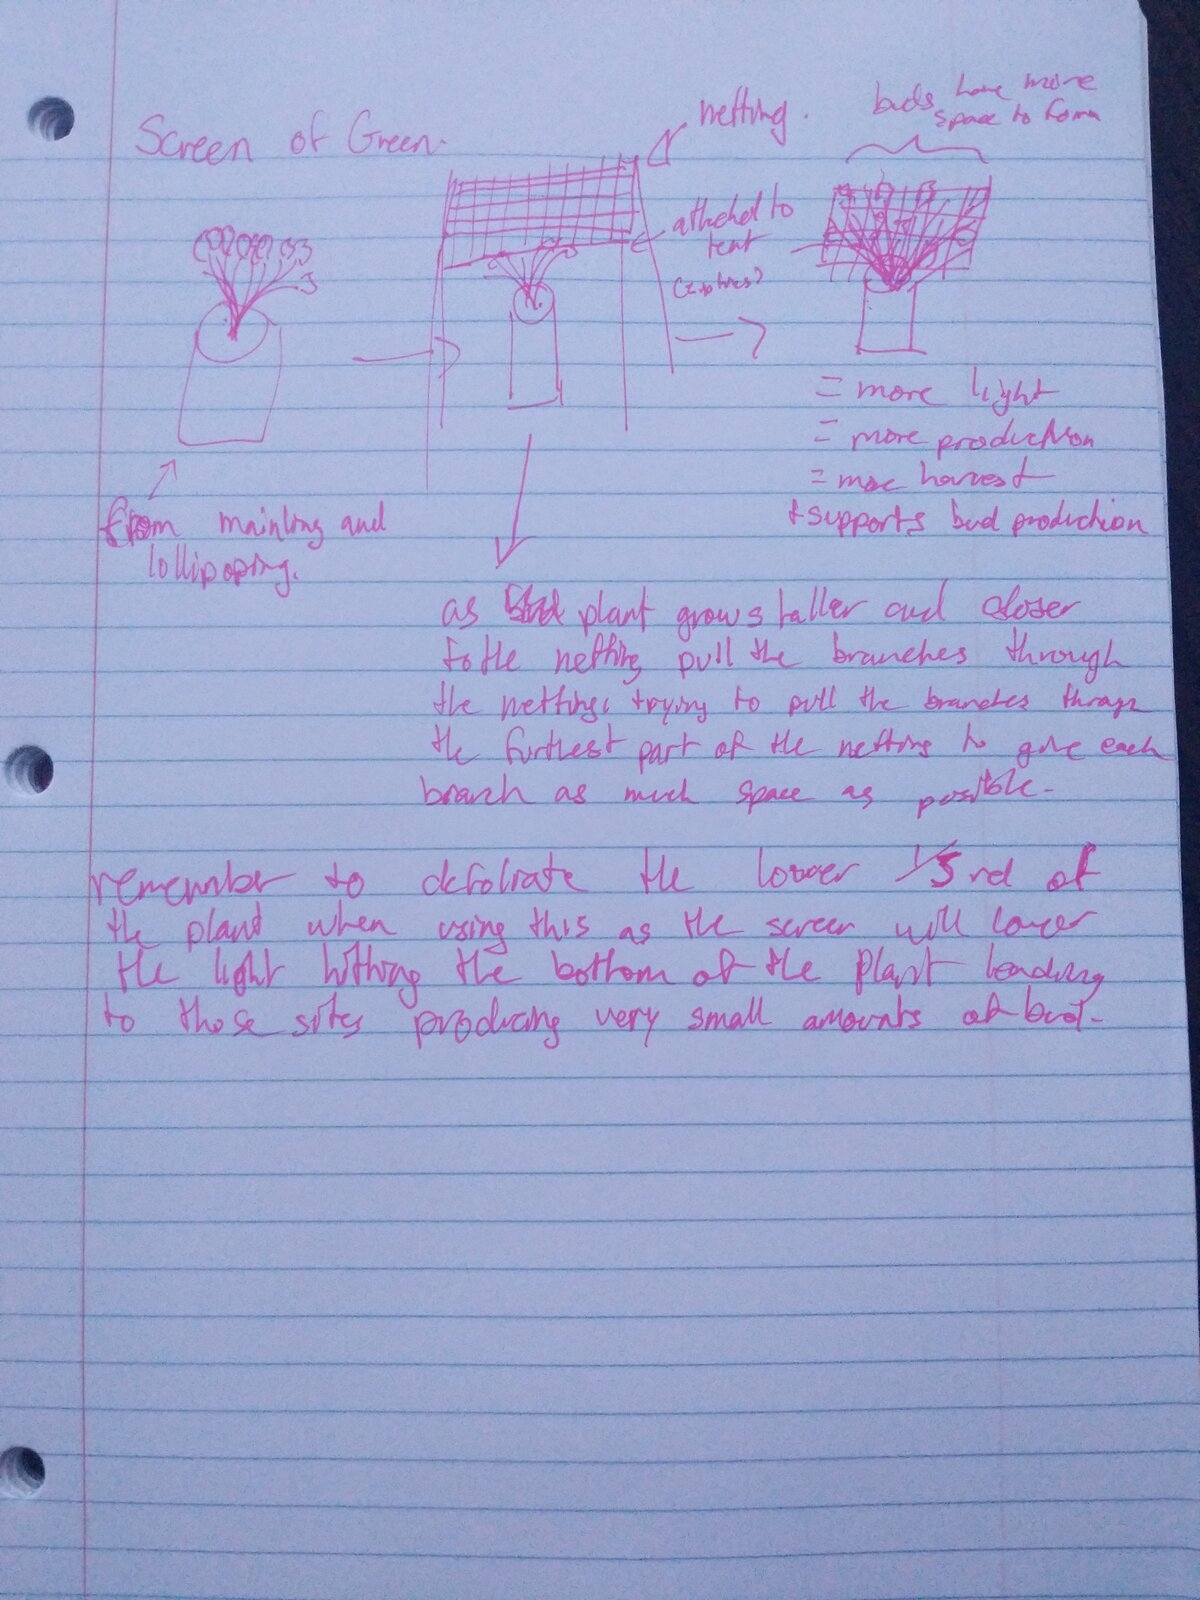 Screen of Green.
netting.
buds have more
space to form
attached to
tent
(zipties)
= more light
= more production
= more harvest
+ supports bud production
from mainling and
lollipoping.
as plant grows taller and closer
to the netting pull the branches through
the netting, trying to pull the branches through
the furthest part of the netting to give each
branch as much space as possible.
remember to defoliate the lower 1/3rd of
the plant when using this as the screen will lower
the light hitting the bottom of the plant leading
to those sites producing very small amounts of bud.